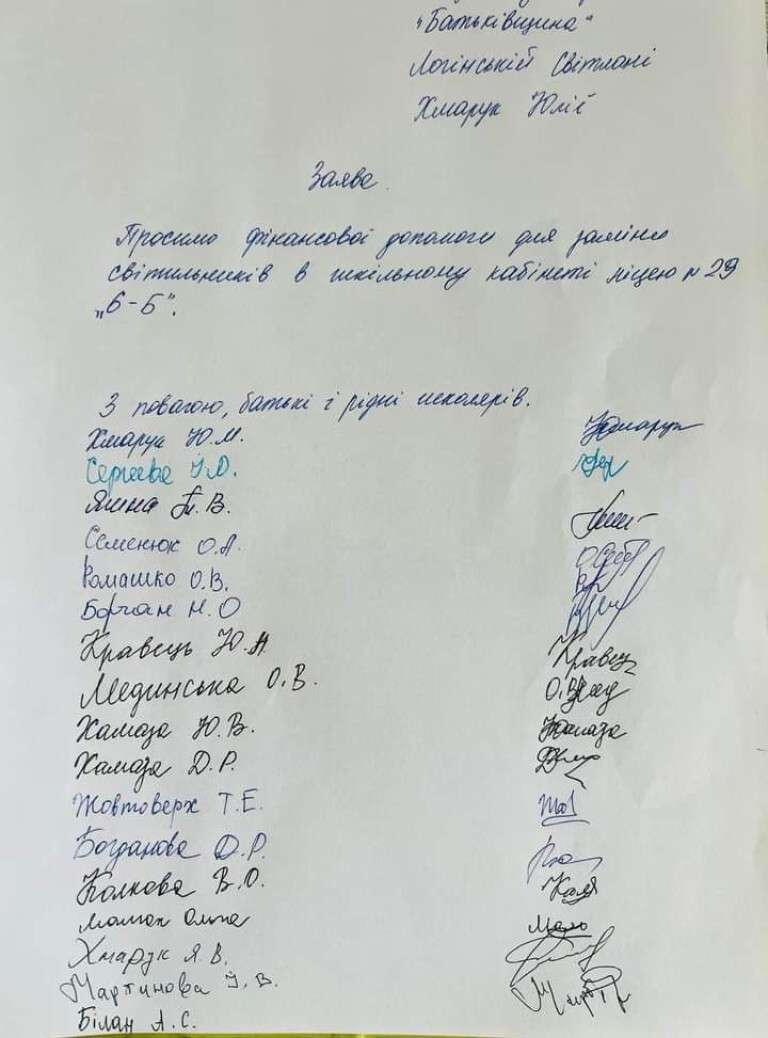 „Батьківщина"
Логінській Світлані
Хмарук Юлії
Заява.
Просимо фінансової допомоги для заміни
світильників в шкільному кабінеті ліцею №29
„6-Б".
З повагою, батькі і рідні школярів.
Хмарук Ю.М.
Сергеева І.О.
Яшна В.
Семенюк О.А.
Ромашко О.В.
Борчан Н.О
Кравець Ю.А Кравец
Мединська О.В.
Хамаза Ю.В. Хамаза
Хамаза Д.Р.
Жовтоверх Т.Е.
Богданова Д.Р.
Колкова В.О.
Ольга
Хмарук Я.В.
Мартинова І.В.
Білан А.С.